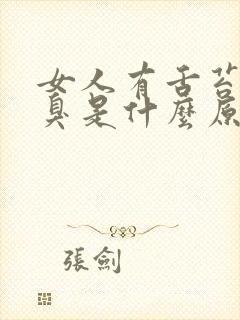 女人有舌苔
臭是什麼原
張劍